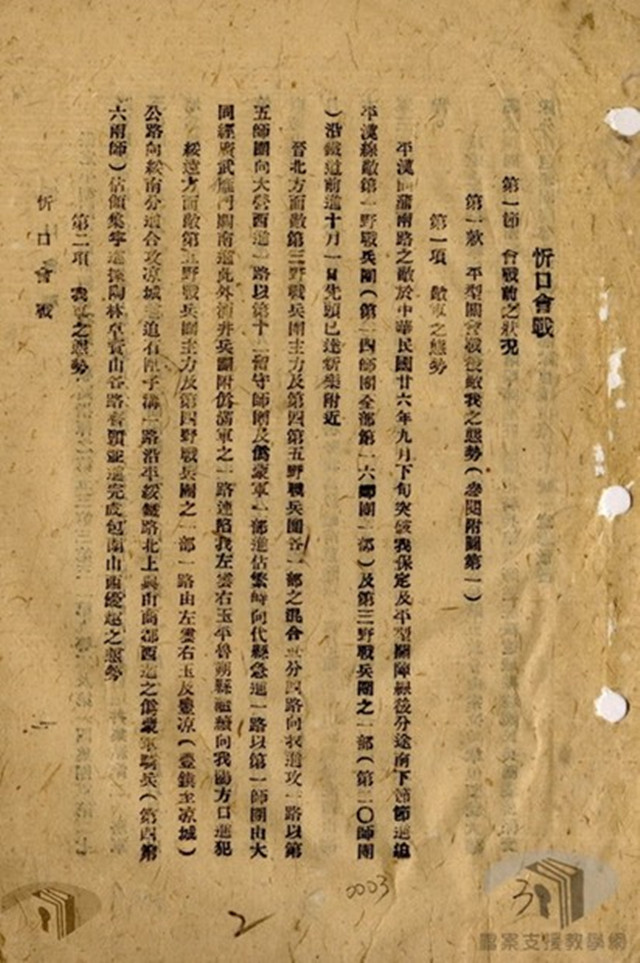 忻口會戰
第一節 會戰前之狀況
第一款 平型關會戰後敵我之態勢(參閱附圖第一)
第一項 敵軍之態勢
平漢同蒲兩路之敵於中華民國廿六年九月下旬突破我保定及平型關陣線後分途南下節節進迫
平漢線敵第一野戰兵團(第一四師團全部第一六師團一部)及第三野戰兵團之一部(第二〇師團
)沿鐵道前進十月一日先頭已達新樂附近
晉北方面敵第三野戰兵團主力及第四第五野戰兵團各一部之混合 分四路向我進攻一路以第
五師團向大營西進一路以第十一留守師團及僞蒙軍一部進佔繁峙向代縣急進一路以第一師團由大
同經廣武雁門關南進此外酒井兵團附僞滿軍之一路連陷我左雲右玉平魯朔縣繼續向我陽方口進犯
綏遠方面敵第五野戰兵團主力及第四野戰兵團之一部一路由左雲右玉及豐涼(豐鎮至涼城)
公路向綏南分進合攻涼城 迫石匣子溝一路沿平綏鐵路北上與由商都西進之僞蒙軍騎兵(第四第
六兩師)佔領集寧進擾陶林卓資山各路着着並進完成包圍山西優越之態勢
第二項 我軍之態勢
忻口會戰
一
0003
2
3
檔案支援教學網